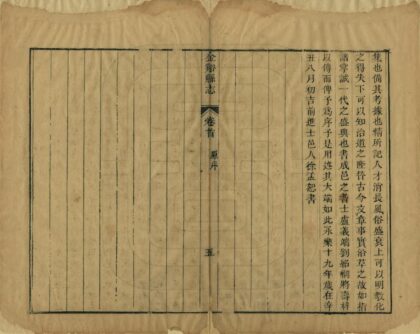 集也備其考據也精所記人才消長風俗盛衰上可以明教化
之得失下可以知治道之隆替古今文章事實治革之故如指
諸掌誠一代之盛典也書成邑之耆士盧義瑞到郡祠將壽梓
以傳而俾予為序予是用述其大端如此永樂十九年歲在辛
丑八月初吉前進士邑人徐孟恕書
金谿縣志
卷首
原序
五